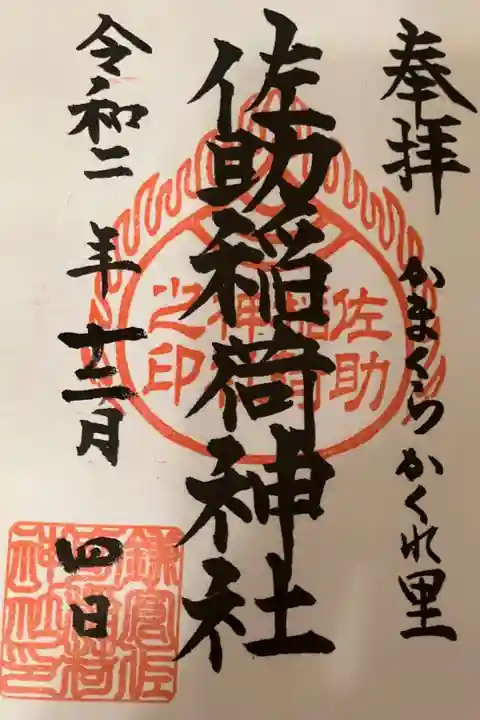 奉拝
かまくらかくれ里
佐助稲荷神社
令和二年十二月四日
佐助
稲荷
神社
之印
鎌倉佐
助稲荷
神社印